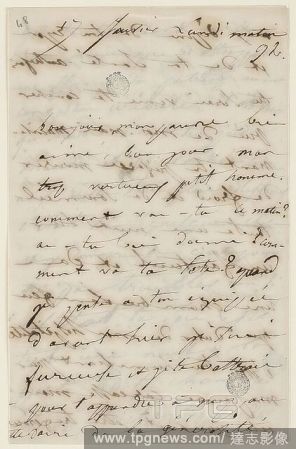 48
7 Janvier Lundi matin
92.
bonjour mon pauvre bien
aimé, bonjour mon
trop vertueux petit homme,
comment vas-tu ce matin?
as-tu bien dormi?
ment va ta tête? quand
je pense à ton
d'avant hier je suis
furieuse et je te
pour t'apprendre
de la générosité
TPG
www.tpgnews.com/達志影像